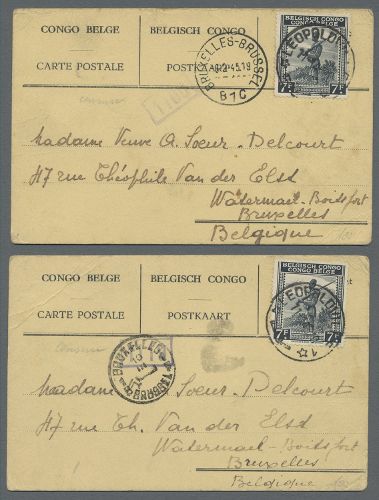 CONGO BELGE
BELGISCH CONGO
CARTE POSTALE
BRUXELLES-BRUSSEL
B1C
BELGISCH CONGO
CONGO BELGE
7F
7F
LEOPOLDVILLE
censure
Madame Veuve A. Soeur-Delcourt
47 rue Théophile Van der Elst
Watermael-Boitsfort
Bruxelles
Belgique
CONGO BELGE
BELGISCH CONGO
CARTE POSTALE
POSTKAART
BELGISCH CONGO
CONGO BELGE
7F
7F
censure
BRUXELLES
Madame
Soeur-Delcourt
47 rue Th. Van der Elst
Watermael-Boitsfort
Bruxelles
Belgique